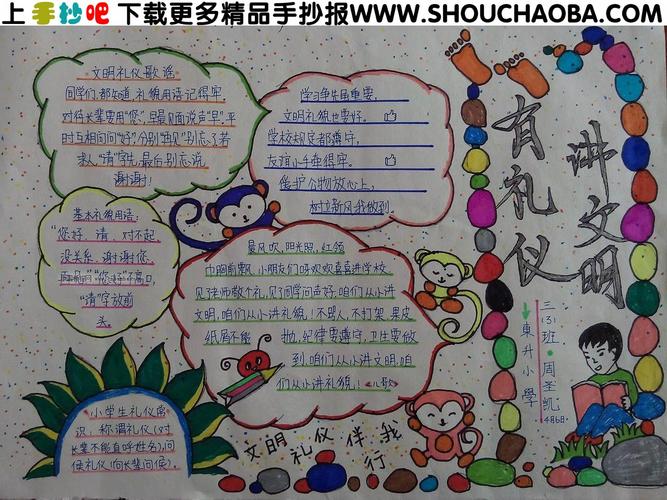 上 手抄吧 下载更多精品手抄报WWW.SHOUCHAOBA.COM
文明礼仪歌谣
同学们,都知道,礼貌用语记得牢
对待长辈要用"您",早晨见面说声"早",平
时互相问问"好",分别"再见"别忘了,有
求人"请"字先,最后别忘说
谢谢!
学习争先虽重要,
文明礼貌也要好。
学校规定都遵守,
友谊小手牵得牢。
维护公物放心上,
树立新风我做到.
基本礼貌用语:
"您好、请、对不起
没关系、谢谢您、
再见""您好"不离口,
"请"字放前
头。
晨风吹,阳光照,红领
巾胸前飘,小朋友们呀欢欢喜喜进学校
见了老师敬个礼,见了同学问声好,咱们从小讲
文明,咱们从小讲礼貌!不骂人,不打架,果皮
纸屑不能抛,纪律要遵守,卫生要做
到,咱们从小讲文明,咱
们从小讲礼貌!《儿歌》
小学生礼仪常
识:称谓礼仪(对
长辈不能直呼姓名),问
候礼仪(向长辈问候)。
文明礼仪伴我行
讲文明
有礼仪
三(3)班·周圣凯
486B
東升小學